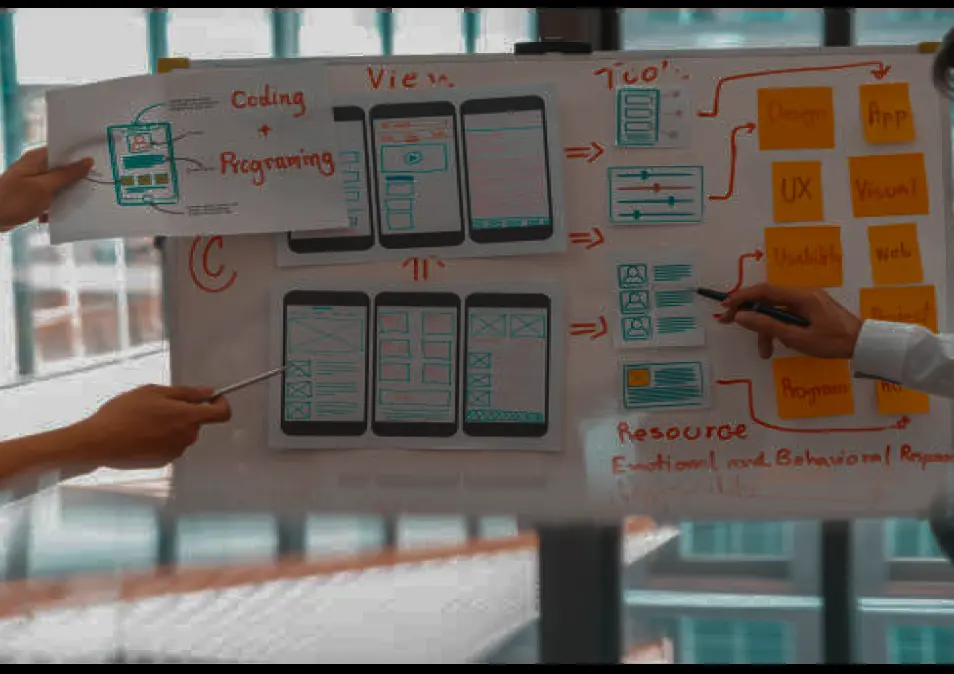 Coding
+
Programing
View
C
Design
App
UX
Visual
Web
Program
Resource
Emotional and Behavioral